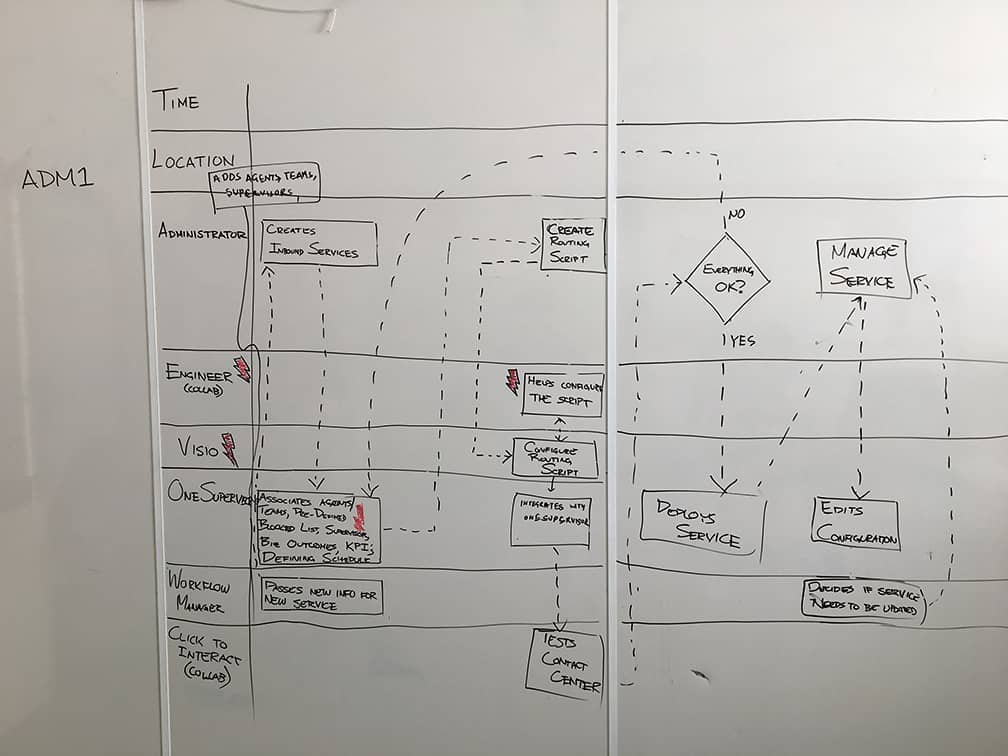 TIME
ADM1
LOCATION
ADDS AGENTS, TEAMS,
SUPERVISORS
ADMINISTRATOR
CREATES
INBOUND SERVICES
CREATE
ROUTING
SCRIPT
NO
EVERYTHING
OK?
YES
MANAGE
SERVICE
ENGINEER
(COLLAB)
HELPS CONFIGURE
THE SCRIPT
VISIO
CONFIGURE
ROUTING
SCRIPT
ONESUPERVISOR
ASSOCIATES AGENTS,
TEAMS, PRE-DEFINED
BLOCKED LIST, SUPERVISORS,
OUTCOMES, KPI,
DEFINING SCHEDULE
INTEGRATES WITH
ONESUPERVISOR
DEPLOYS
SERVICE
EDITS
CONFIGURATION
WORKFLOW
MANAGER
PASSES NEW INFO FOR
NEW SERVICE
DECIDES IF SERVICE
NEEDS TO BE UPDATED
CLICK TO
INTERACT
(COLLAB)
TESTS
CONTACT
CENTER